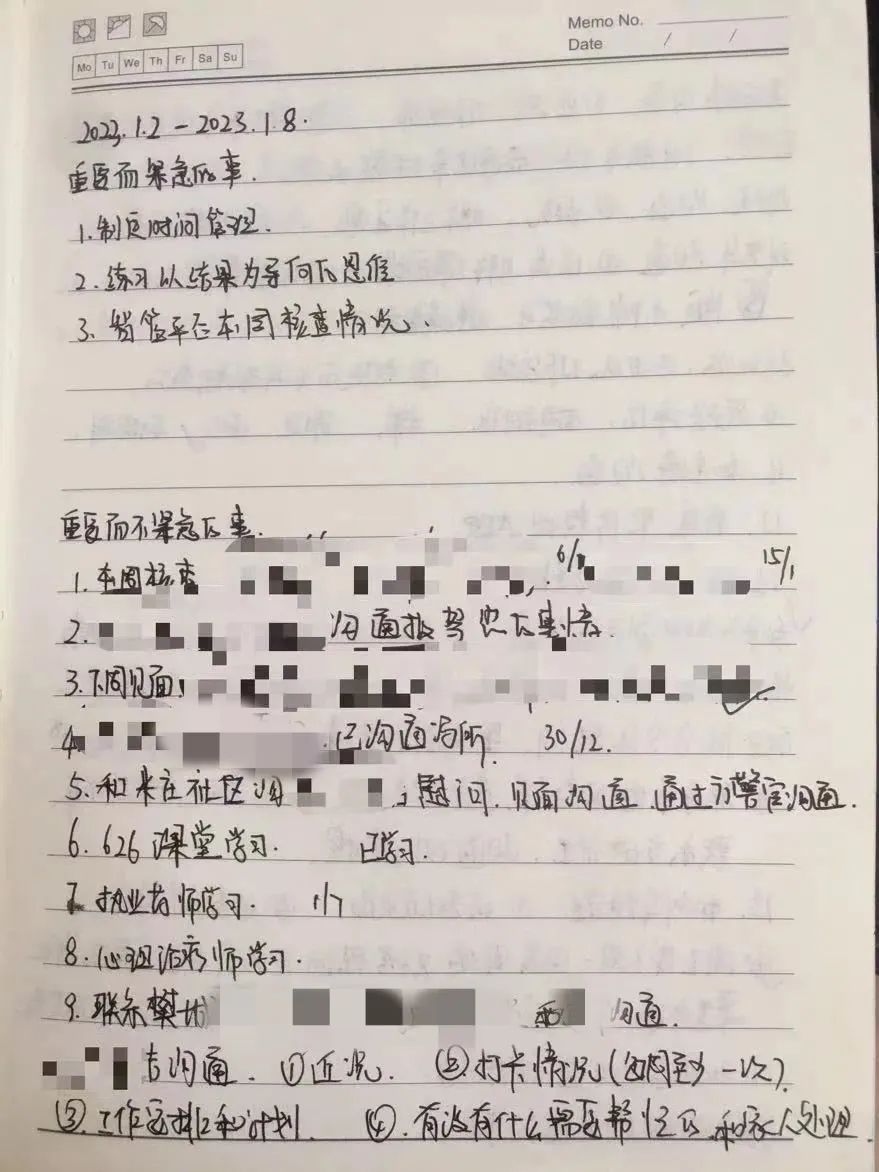 Memo No.
Date / /
Mo Tu We Th Fr Sa Su
2023.1.2-2023.1.8.
重要而紧急的事.
1.制定时间管理.
2.练习以结果为导向的思维
3.智管平台本周核查情况.
重要而不紧急的事.
1.本周核查 6/1 15/1
2. 沟通报驾照的事情.
3.下周见面:
4 .已沟通 所. 30/12.
5.和 庄社区 慰问.见面沟通.通过方警官沟通.
6.626课堂学习. 已学习.
7.执业药师学习. 1/7
8.心理治疗师学习.
9.联系樊 和 沟通.
沟通. ①近况. ②打卡情况(每周至少一次).
③.工作安排和计划. ④.有没有什么需要帮忙的.和家人处理.